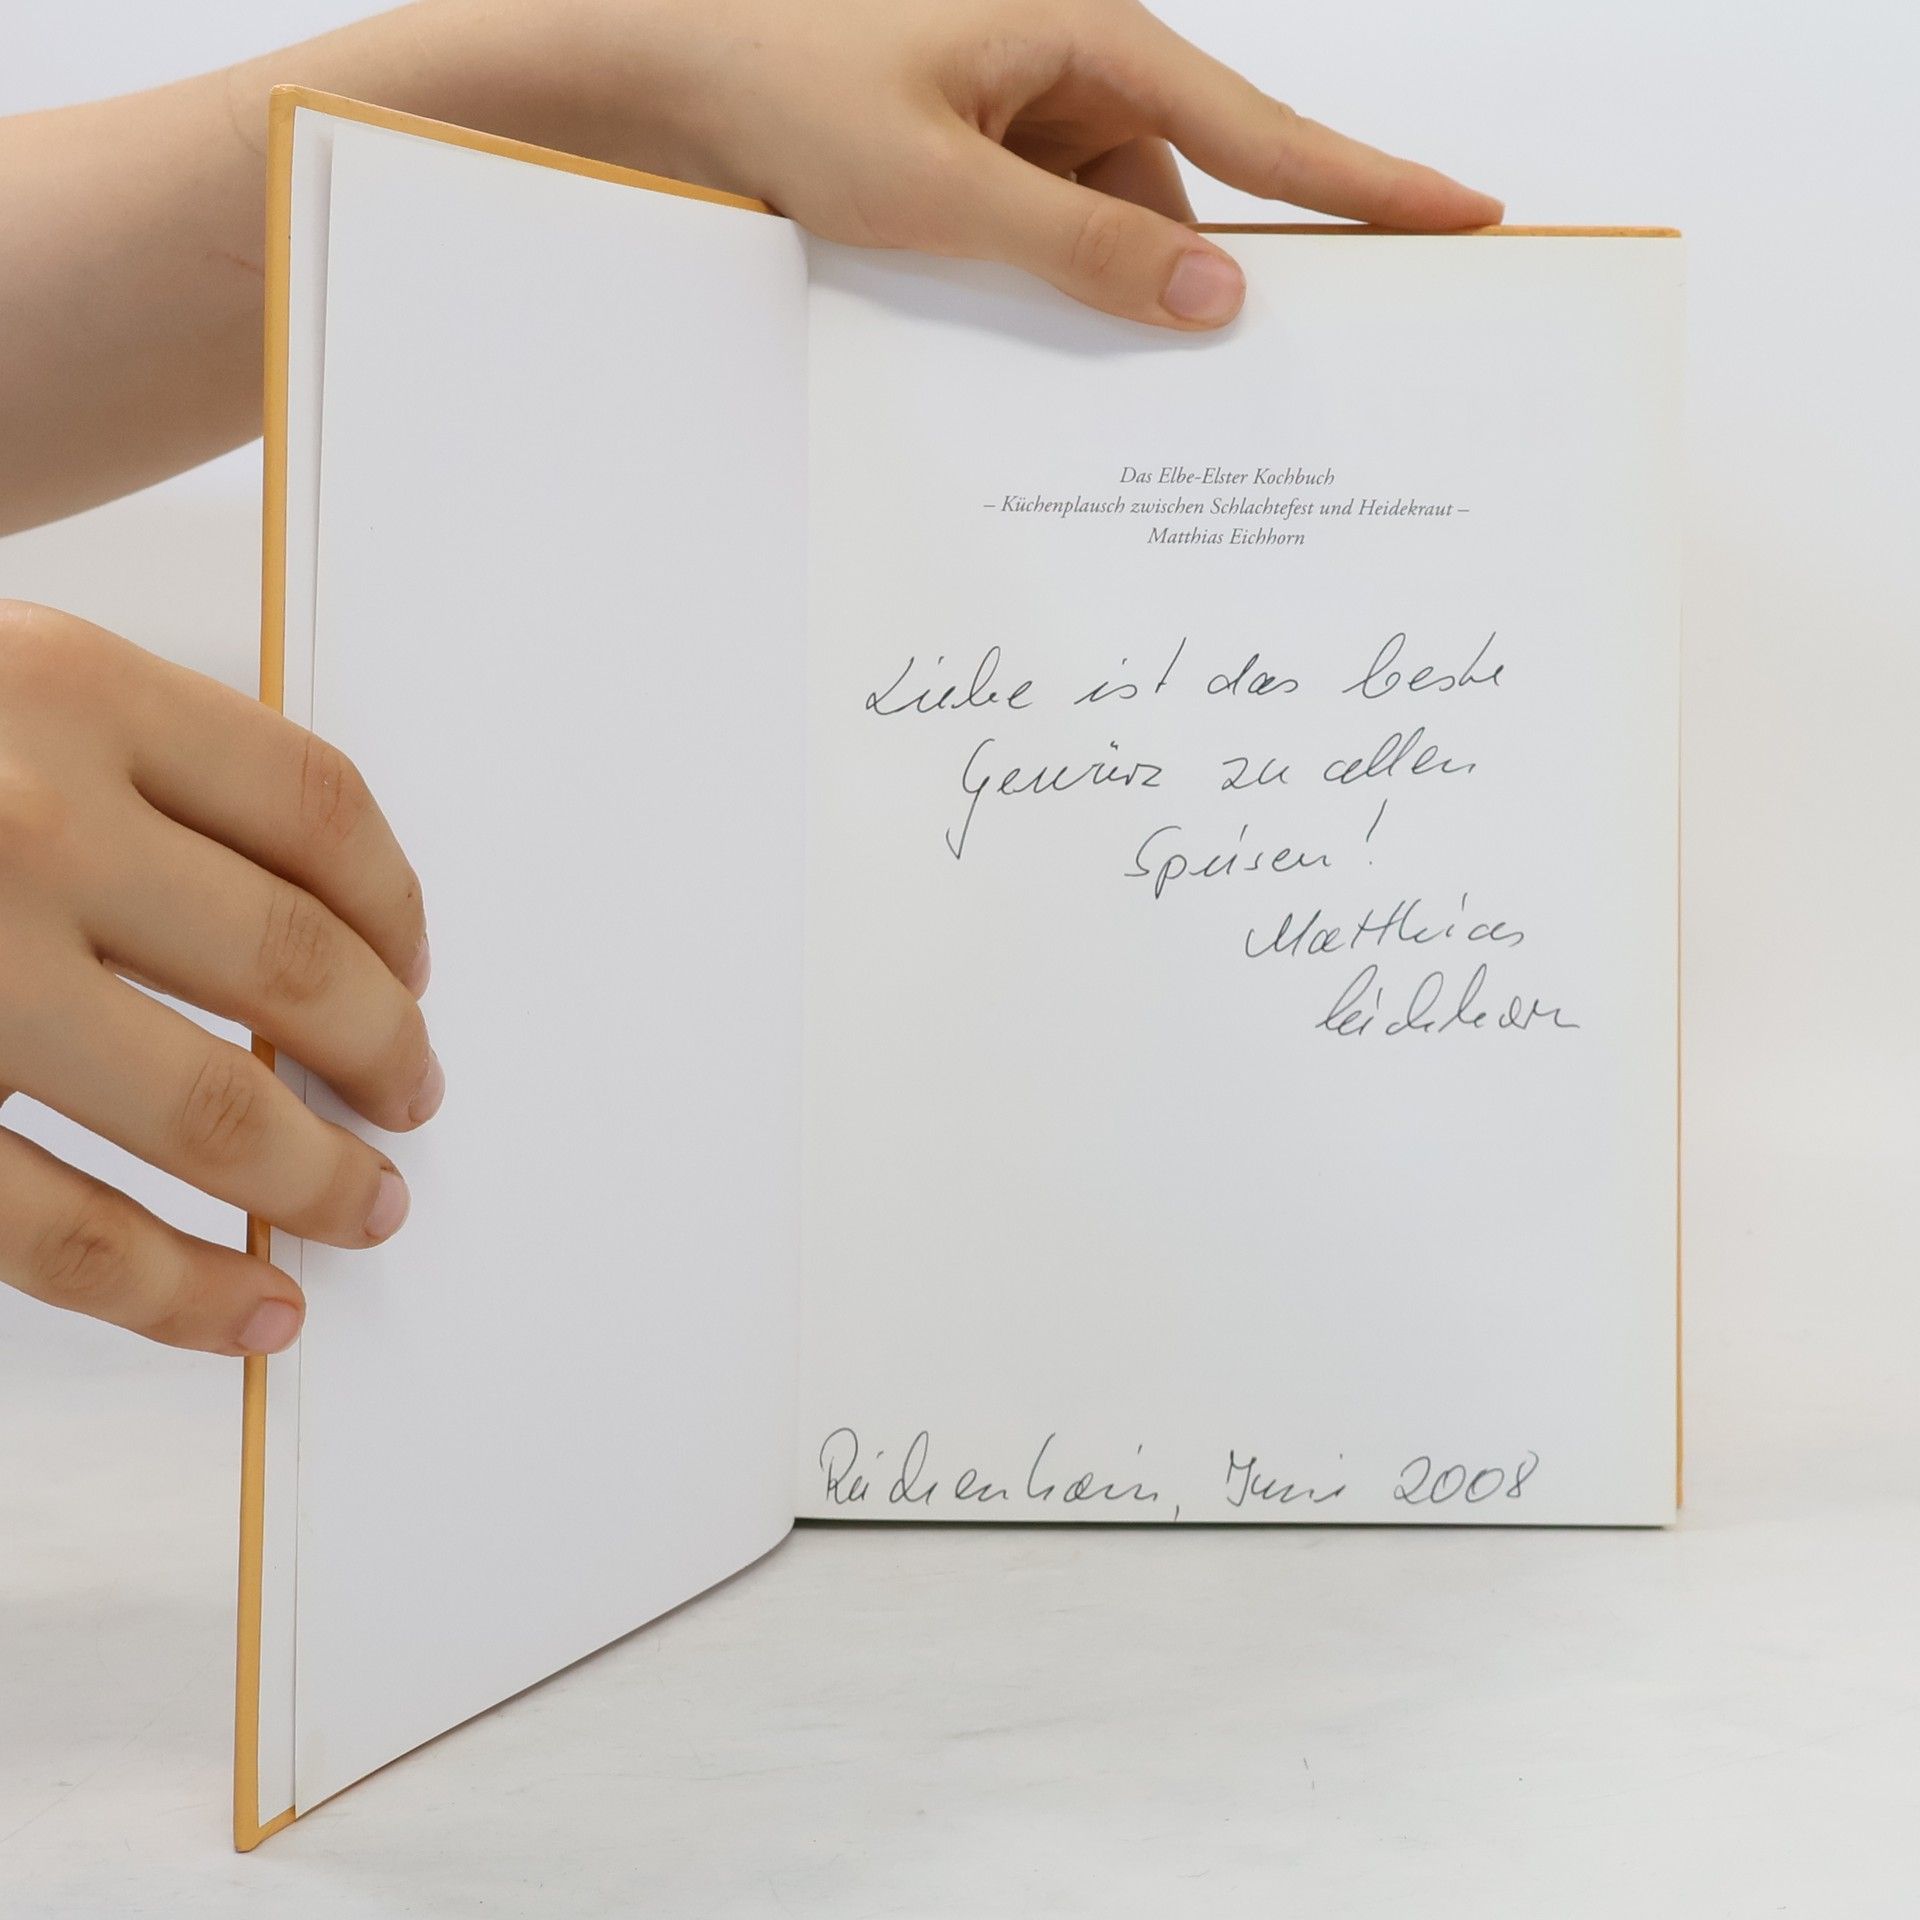 Das Elbe-Elster Kochbuch
– Küchenplausch zwischen Schlachtefest und Heidekraut –
Matthias Eichhorn
Liebe ist das beste
Gewürz zu allen
Speisen!
Matthias
Eichhorn
Reichenhain, Juni 2008